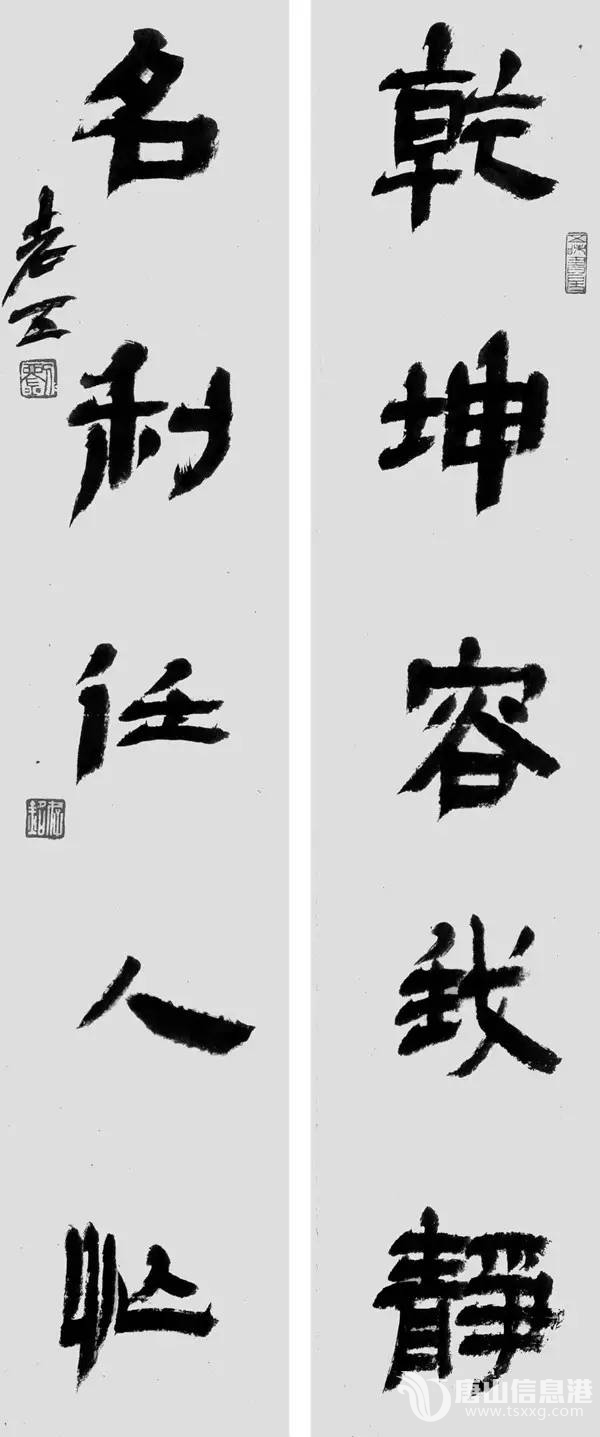 乾坤容我静
名利任人忙
老五
唐山信息港
www.tsxxg.com